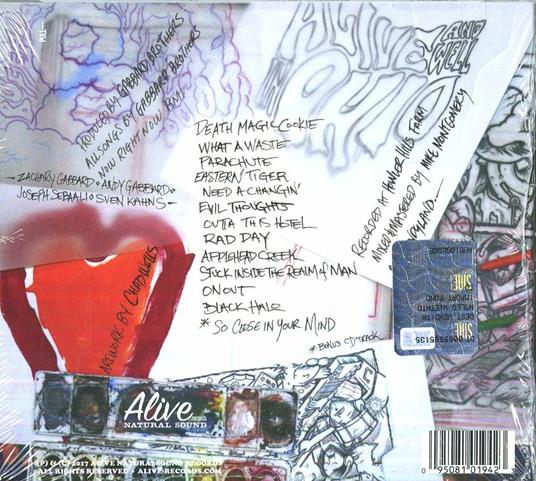 PULL
PRODUCED BY GABBARD BROTHERS
ALL SONGS BY GABBARD BROTHERS
NOW RIGHT NOW BMI
- ZACHARY GABBARD • ANDY GABBARD •
JOSEPH SEBAALI • SVEN KAHNS -
ALIVE
AND
WELL
IN
OHIO
DEATH MAGIC COOKIE
WHAT A WASTE
PARACHUTE
EASTERN TIGER
NEED A CHANGIN'
EVIL THOUGHTS
OUTTA THIS HOTEL
RAD DAY
APPLEHEAD CREEK
STUCK INSIDE THE REALM of MAN
ON OUT
BLACK HALO
* SO CLOSE IN YOUR MIND
* BONUS CD-TRACK
RECORDED AT HOWLER HILLS FARM
MIXED & MASTERED BY MIKE MONTGOMERY
ARTWORK BY CHAD WELLS
AUDIOGLOBE
SIAE
IMPORT FONO
NOLEG VIETATO
DEST VENDITA
SIAE
Alive
RECORDS
NATURAL SOUND
(P) & (C) 2017 ALIVE NATURALSOUND RECORDS
ALL RIGHTS RESERVED • ALIVE-RECORDS.COM
0 95081 01942